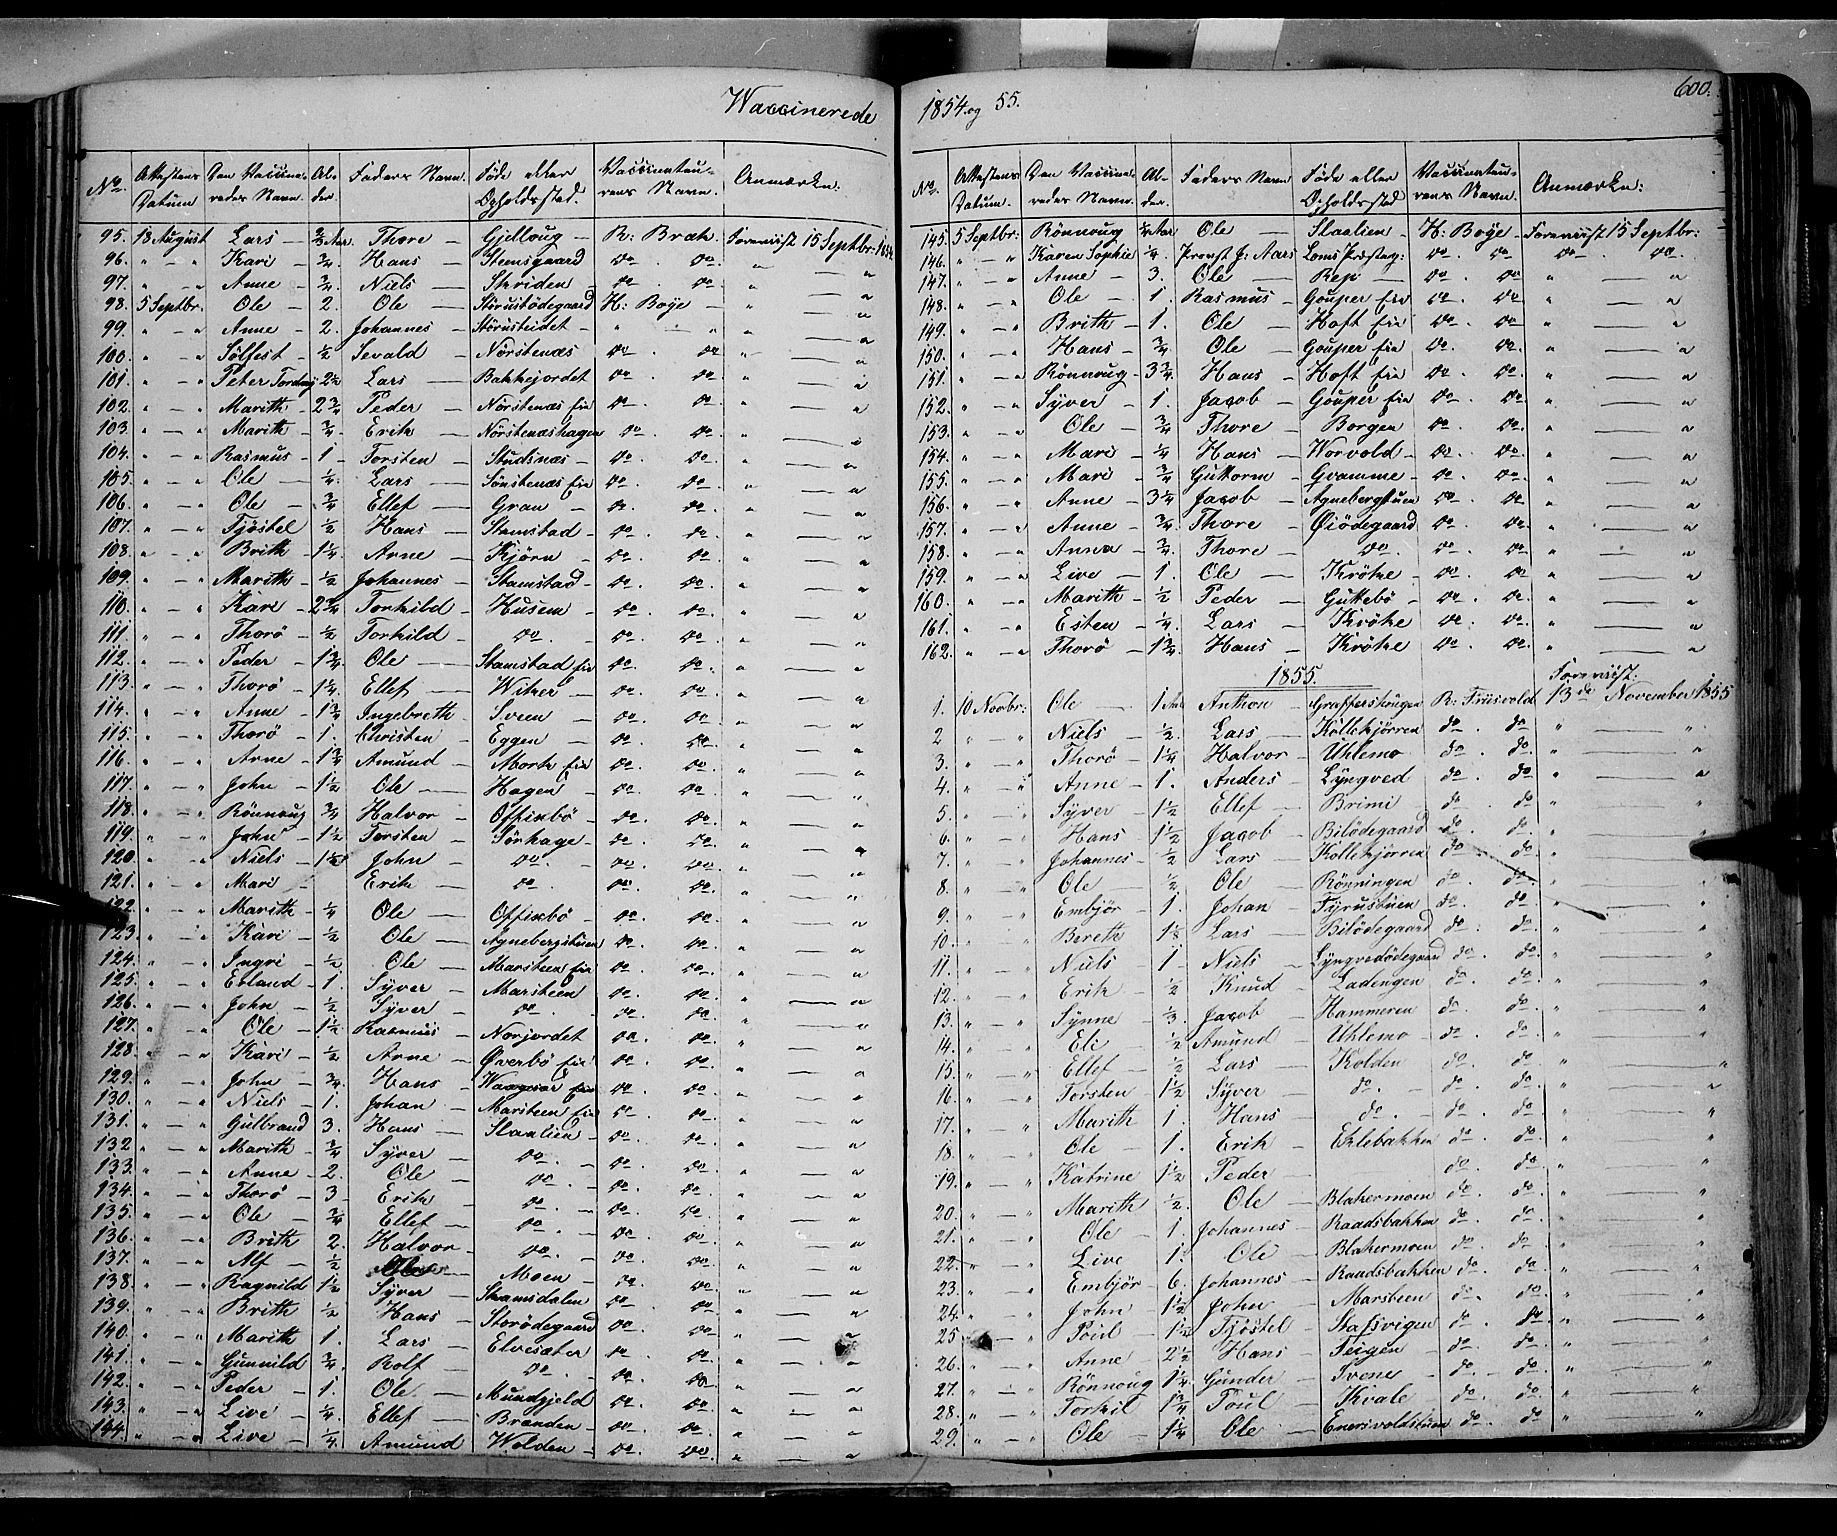 Waccinerede
1854 og 55.
600.
No. Attestens Datum Den Vaccineredes Navn. Alder. Faders Navn. Føde eller Opholdssted. Vaccinateurens Navn. Anmærkn:
95. 18 August Lars Thore Gjelloug R: Bræk. Foreviist 15 Septbr: 1854
96. " " Kari 3/4 Hans Stemsgaard do do " "
97. " " Anne 3/4 Niels Skriden do do " "
98. 5 Septbr. Ole 2. Ole H: Boye " "
99. " " Anne 2. Johannes " " " "
100. " " Sølfest 1/2 Sevald Nørstenæs do do " "
101. " " Peter Lars Bakkejordet do do " "
102. " " Marith 2 3/4 Peder Nørstenæs eie do do " "
103. " " Marith 3/4 Erik Nørstenæshagen do do " "
104. " " Rasmus 1 Torsten Studsnæs do do " "
105. " " Ole 1/4 Lars Sønstenæs eie do do " "
106. " " Ole 3/4 Ellef Gran do do " "
107. " " Tjøstel 1/2 Hans Stamstad do do " "
108. " " Brith 1 1/4 Arne Kjørn do do " "
109. " " Marith 1/2 Johannes Stamstad do do " "
110. " " Kari 2 3/4 Torkild Husem do do " "
111. " " Thorø 1/2 Torkild do do do " "
112. " " Peder 1 3/4 Ole Stamstad eie do do " "
113. " " Thorø 1 1/4 Ellef Witker do do " "
114. " " Anne 1 3/4 Ingebreth Sveen do do " "
115. " " Thorø 1. Christen Eggen do do " "
116. " " Arne 1 3/4 Amund Mork eie do do " "
117. " " John 1 1/2 Ole Hagen do do " "
118. " " Rønnoug 3/4 Halvor Offixbø do do " "
119. " " John 1 1/2 Torsten Sørhage do do " "
120. " " Niels John do do do " "
121. " " Mari Erik do do do " "
122. " " Marith 1/4 Ole Offixbø do do " "
123. " " Kari 1/2 Ole Agnebergstuen do do " "
124. " " Ingri 1/2 Ole Marsteen eie do do " "
125. " " Erland 1. Syver Marsteen do do " "
126. " " John 1/2 Syver do do do " "
127. " " Ole 1 1/2 Rasmus Norjordet do do " "
128. " " Kari 1/2 Arne Øverbø eie do do " "
129. " " John 3/4 Hans do do " "
130. " " Niels 1. Johan Marsteen eie do do " "
131. " " Gulbrand 3. Hans Slaalien do do " "
132 " " Marith 3/4 Syver do do do " "
133. " " Anne 2. Ole do do do " "
134. " " Thorø 3 Erik do do do " "
135. " " Ole 3/4 Ellef do do do " "
136. " " Brith 2. Halvor do do do " "
137. " " Alf 1/2 Moen do do " "
138. " " Ragnild 1 1/2 Syver Skamsdalen do do " "
139. " " Brith 1/2 Hans Storødegaard do do " "
140. " " Marith 1. Lars Elvesæter do do " "
141. " " Gunnild 3/4 Rolf do do do " "
142. " " Peder 1. Ole Mundgjeld do do " "
143. " " Live 1/4 Ellef Branden do do " "
144. " " Live 1/4 Amund Wolden do do " "
No. Attestens Datum. Den Vaccineredes Navn. Alder. Faders Navn Føde eller Opholdssted Vaccinateurens Navn. Anmærkn:
145. 5 Septbr: Rønnoug Ole Slaalien H: Boye Foreviist 15 Septbr:
146. " " Karen Sophie 1/4 Provst J: Aars Loms Præsteg: do do do do
147. " " Anne 3. Ole Rep do do " "
148. " " Ole 1. Rasmus Gouper eie do do " "
149. " " Brith 1. Ole Hoft eie do do " "
150. " " Hans 3/4 Ole Gouper eie do do " "
151. " " Rønnoug 3 3/4 Hans Hoft eie do do " "
152. " " Syver 1. Jacob Gouper eie do do " "
153. " " Ole 3/4 Thore Borgen do do " "
154. " " Mari 1/4 Hans Worvold do do " "
155. " " Mari 3/4 Guttorm Gvamme do do " "
156. " " Anne 3 1/4 Jacob Agnebergstuen do do " "
157. " " Anne 3/4 Thore Øiødegaard do do " "
158. " " Anna 3/4 Thore do do do " "
159. " " Live 1. Ole Krøke do do " "
160. " " Marith 1/2 Peder Guttebø do do " "
161. " " Esten 1/4 Lars Krøke do do " "
162. " " Thorø 1 3/4 Hans Krøke do do " "
1855.
Foreviist:
1. 10 Novbr: Ole 1 Anthon Graffershougen R: Friisvold 13de November 1855
2 " " Niels 1/2 Lars Kollekjørren do do " "
3. " " Thorø 1 1/4 Halvor Uhlemo do do "
4. " " Anne 1. Anders Lyngved do do " "
5. " " Syver 1 1/2 Ellef Brimi do do " "
6. " " Hans 1 1/2 Jacob Bilødegaard do do " "
7. " " Johannes 1/2 Lars Kollekjørren do do " "
8. " " Ole 1/2 Ole Rønningen do do " "
9. " " Embjør 1. Johan Fyrustuen do do " "
10. " " Bereth 1 1/2 Lars Bilødegaard do do " "
11. " " Niels 1 Niels Lyngvedødegaard do do " "
12. " " Erik 1/2 Knud Ladengen do do " "
13. " " Synne 1/3 Jacob Hammeren do do " "
14. " " Eli 1/2 Amund Uhlemo do do " "
15. " " Ellef 1/2 Lars Kolden do do " "
16. " " Torsten 1 1/2 Syver do do do " "
17. " " Marith 1 Hans do do do " "
18. " " Ole 1. Erik Eklebakken do do " "
19. " " Katrine 1 1/2 Peder do do " "
20. " " Marith 1/2 Ole Blakermoen do do " "
21. " " Ole 1. Johannes Raadsbakken do do " "
22. " " Live 1. Ole Blakermoen do do " "
23. " " Embjør 6. Johannes Raadsbakken do do " "
24. " " John 1 1/2 John Marsteen do do " "
25 " " Poul 1 1/2 Tjøstel Stafsvigen do do " "
26. " " Anne 2 1/2 Hans Teigen do do " "
27. " " Rønnoug 1 1/4 Gunder Svene do do " "
28. " " Torkil 1 3/4 Poul Kvale do do " "
29. " " Ole 1 1/4 Ole Enersvoldstuen do do " "